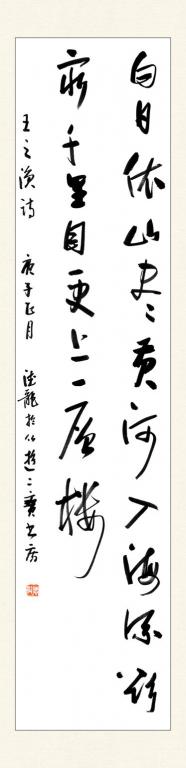 白日依山尽黄河入海流欲
穷千里目更上一层楼
王之涣诗 庚子正月 德龙於仙游三宝书房